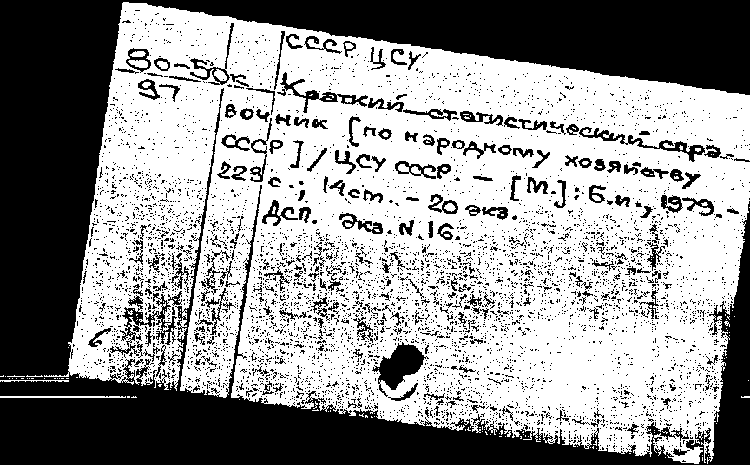 СССР ЦСУ
80-50к
97
Краткий статистический спра-
вочник [по народному хозяйству
СССР] / ЦСУ СССР. — [М.]: Б.и., 1979. -
223 с.; 14 cm. - 20 экз.
Дсп. Экз. N 16.